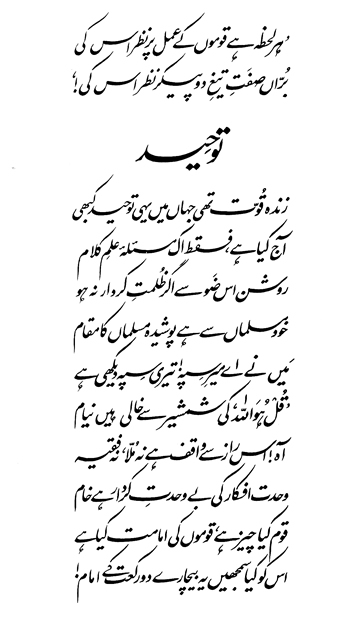 ہر لحظہ ہے قوموں کے عمل پر نظر اس کی
بُرّاں صفَتِ تیغِ دو پیکر نظر اس کی!
توحید
زندہ قُوّت تھی جہاں میں یہی توحید کبھی
آج کیا ہے، فقط اک مسئلۂ علمِ کلام
روشن اس ضَو سے اگر ظُلمتِ کردار نہ ہو
خود مسلماں سے ہے پوشیدہ مسلماں کا مقام
مَیں نے اے میرِ سپہ! تیری سپہ دیکھی ہے
’قُلْ ھُوَ اللہ‘ کی شمشیر سے خالی ہیں نیام
آہ! اس راز سے واقف ہے نہ مُلّا، نہ فقیہ
وحدت افکار کی بے وحدتِ کردار ہے خام
قوم کیا چیز ہے، قوموں کی امامت کیا ہے
اس کو کیا سمجھیں یہ بیچارے دو رکعت کے امام!